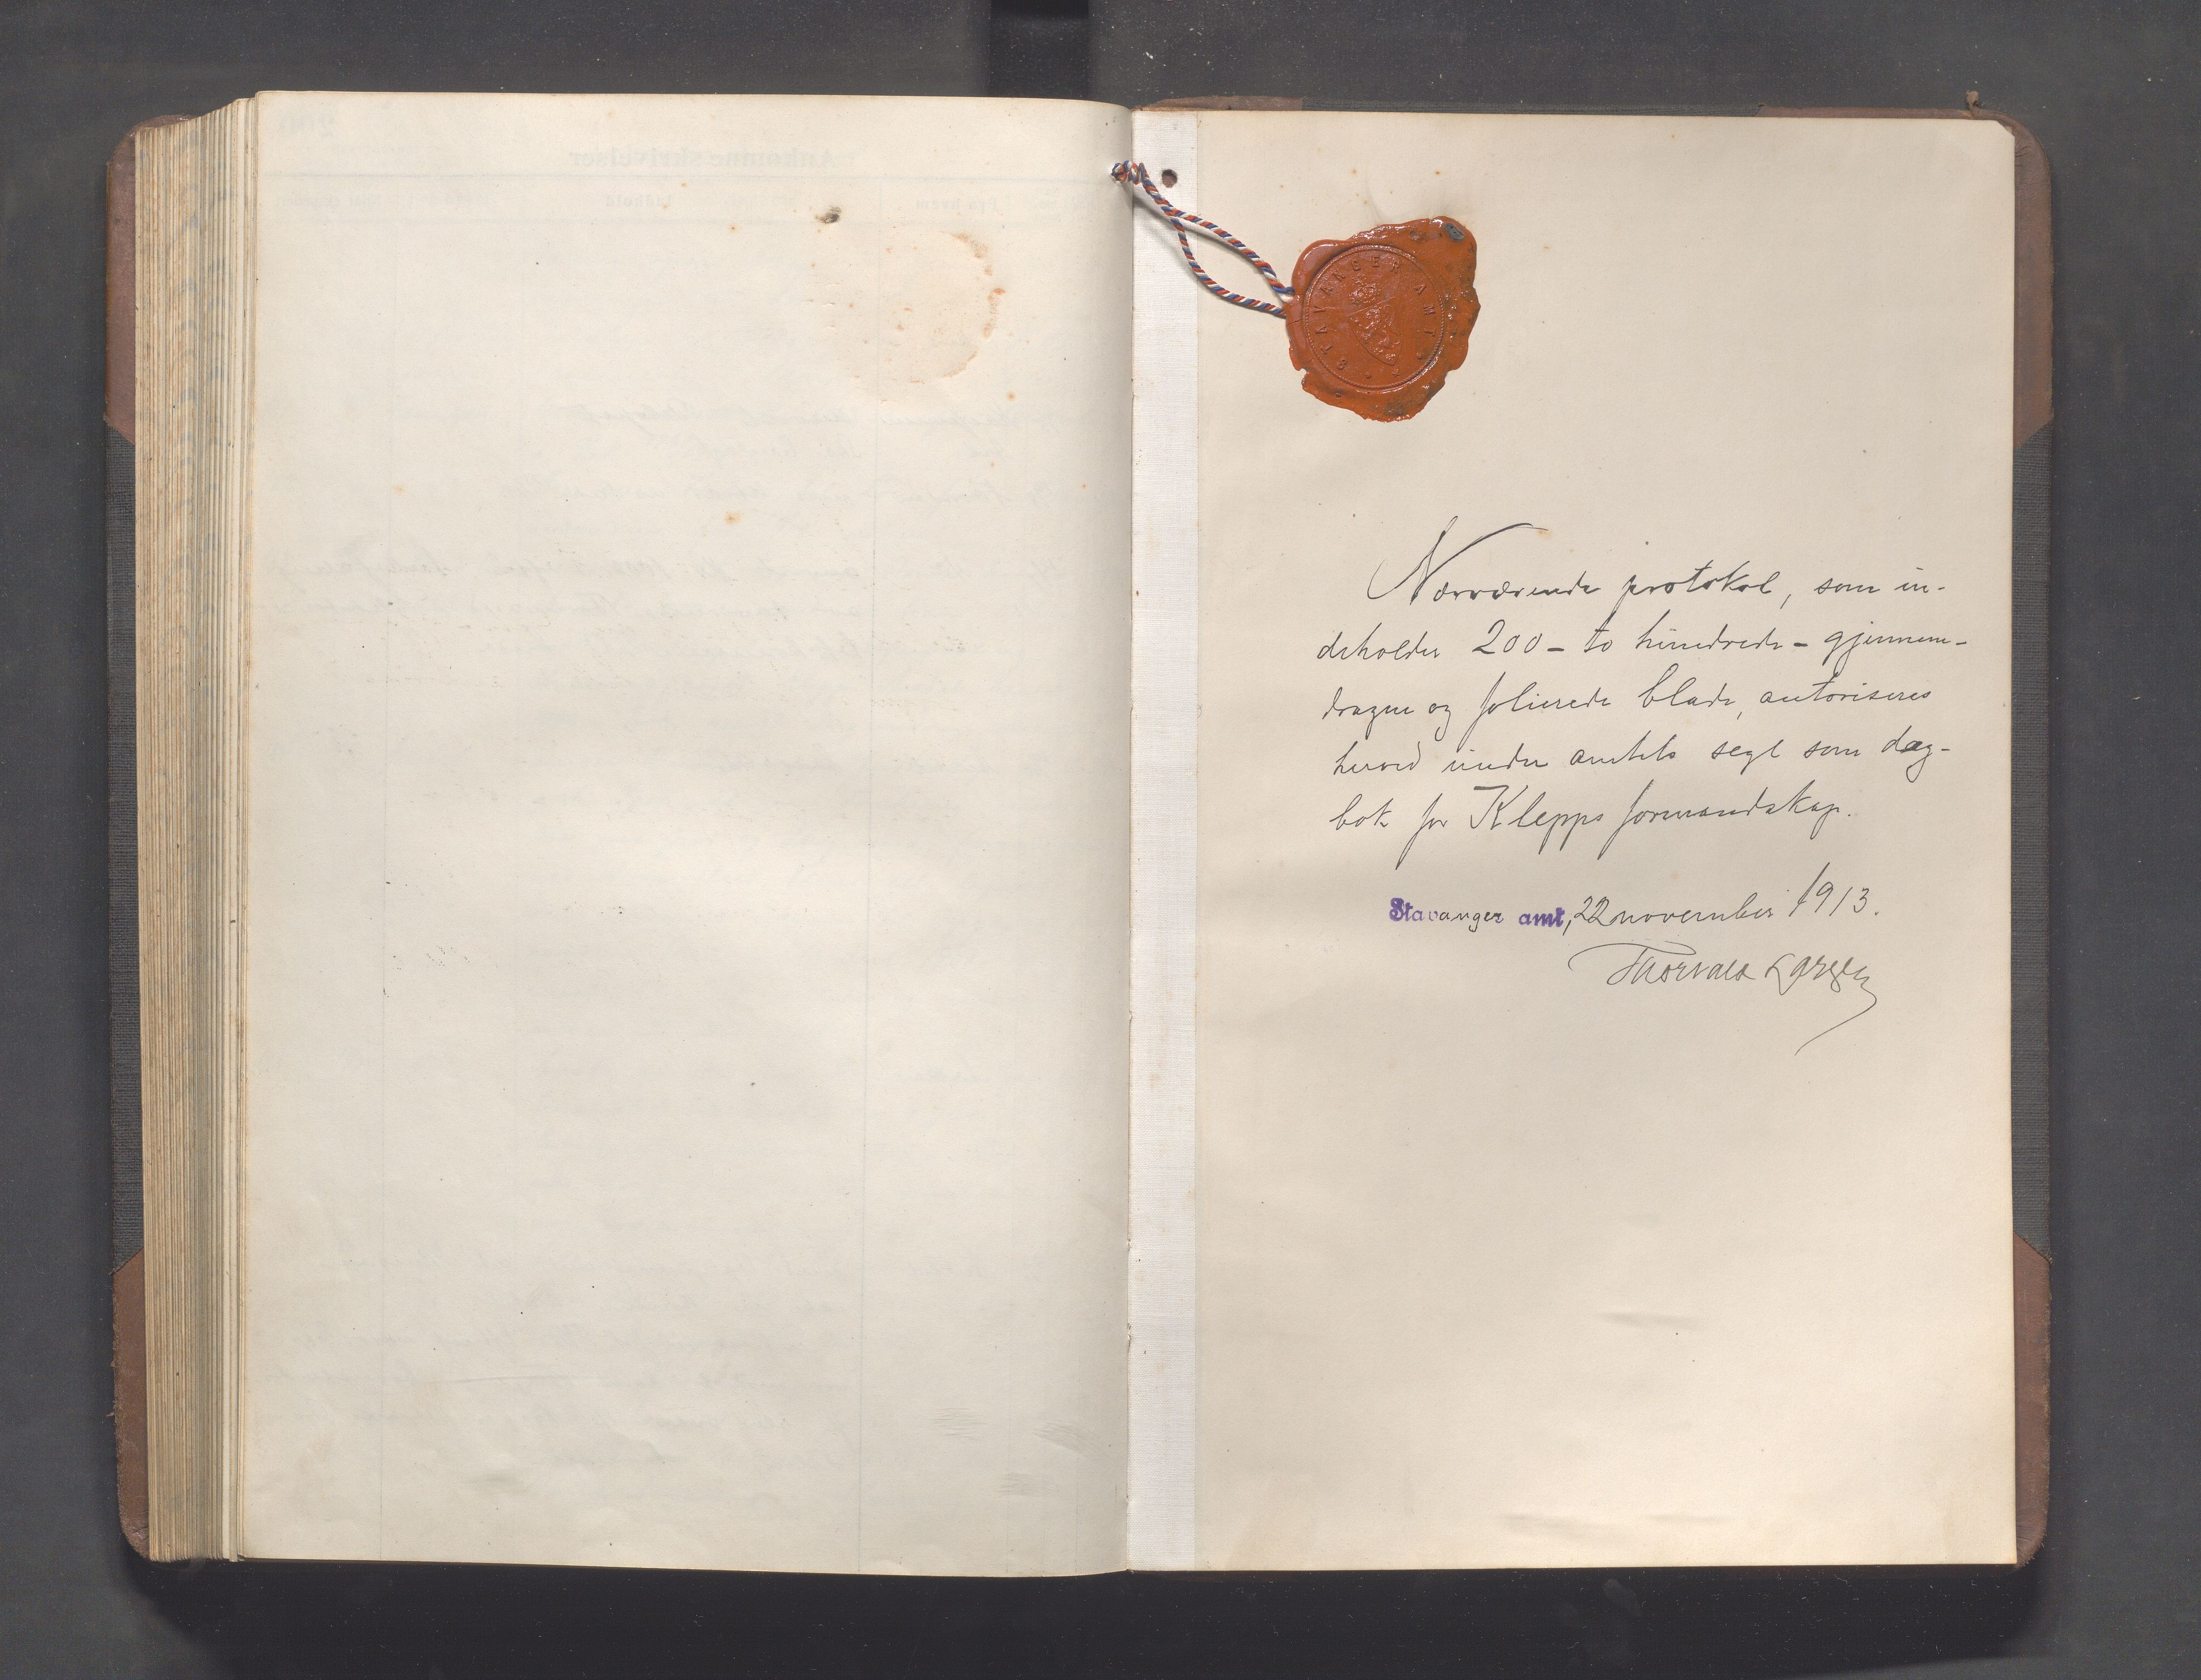 STAVANGER AMT
Nærværende protokol, som in-
deholder 200 - to hundrede - gjennem-
dragne og folierede blade, autoriseres
herved under amtets segl som dag-
bok for Klepps formandskap.
Stavanger amt, 22 november 1913.
Thorvald Larsen
200
Ankomne skrivelser
Fra hvem
Indhold